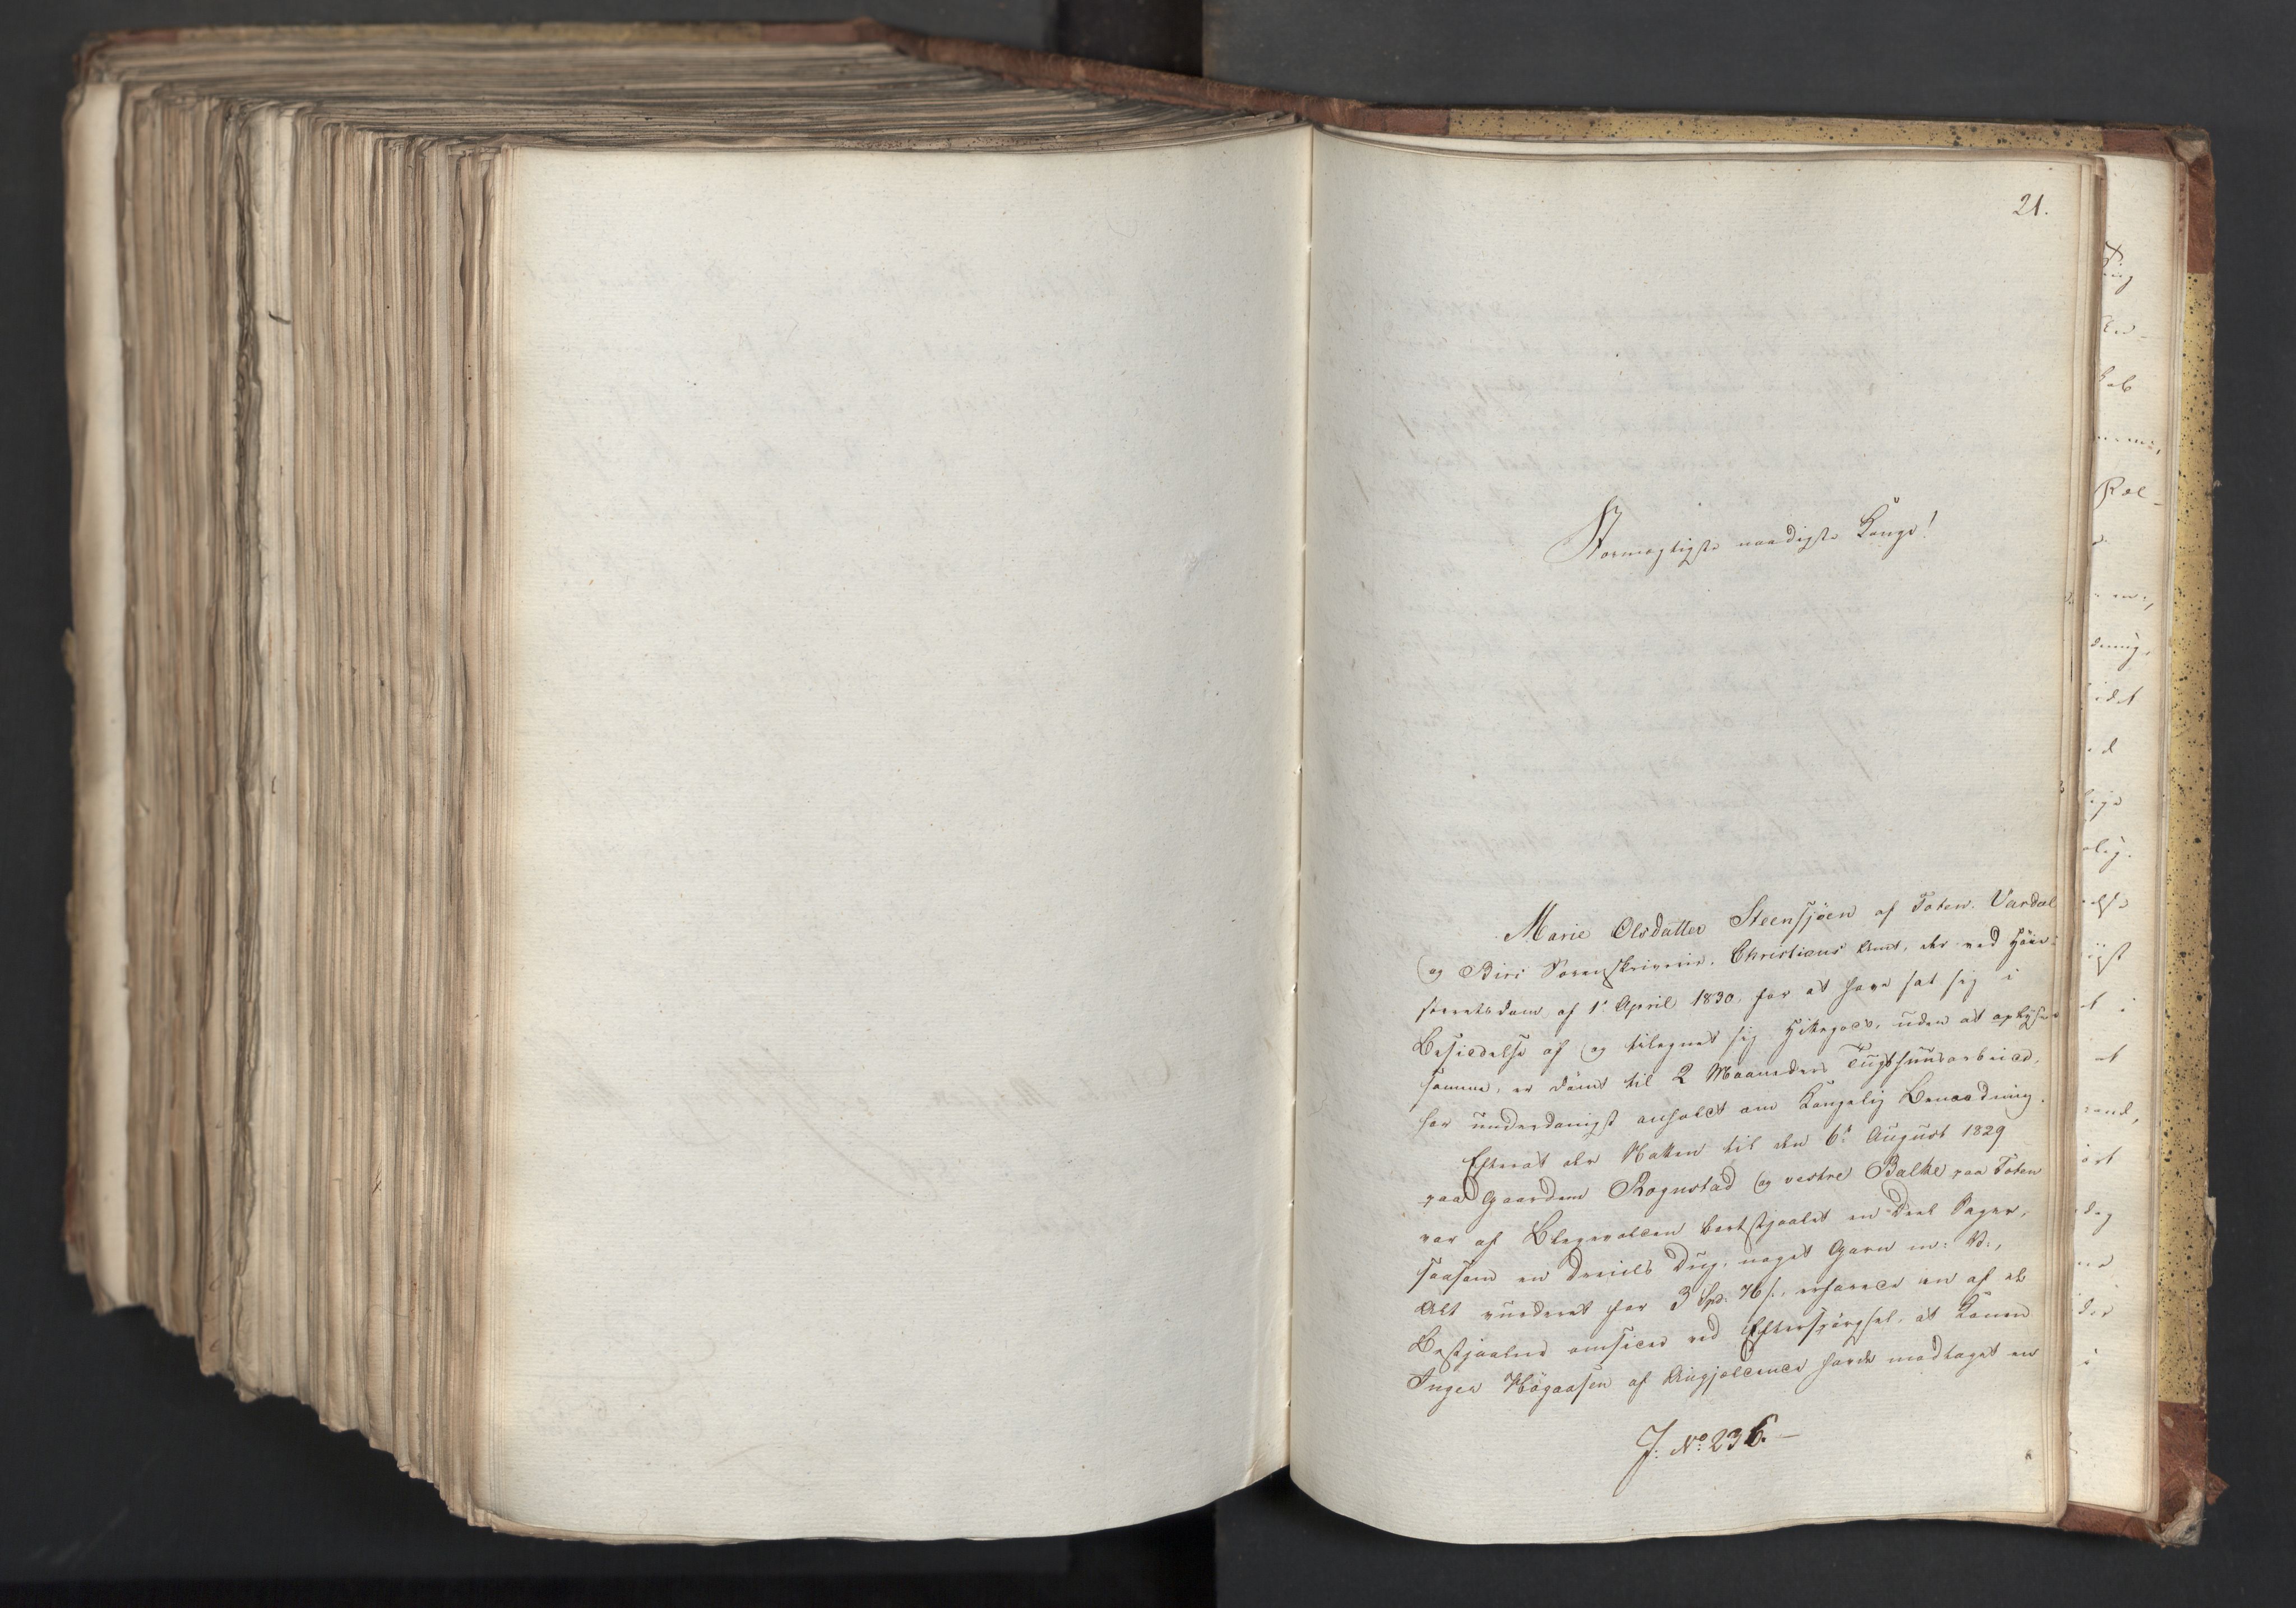 21.
Stormægtigste naadigste Konge!
Marie Olsdatter Steensjøen af Toten, Vardal
og Biri Sorenskriverie, Christians Amt, der ved Høie-
steretsdom af 1ste April 1830, for at have sat sig i
Besiddelse af og tilegnet sig Hittegods, uden at oplyse
samme, er dømt til 2 Maaneders Tugthuusarbeide,
har underdanigst anholdt om Kongelig Benaadning.
Efterat der Natten til den 6te August 1829
paa Gaardene Rognstad og vestre Balke paa Toten
var af Blegevolden bortstjaalet en Deel Sager,
saasom en Dreiels Dug, noget Garn m: V:,
Alt vurderet for 3 Spd. 76 s., erfarede en af de
Bestjaalne omsider ved Efterspørgsel, at Konen
Inger Høgaasen af Angjeldende havde modtaget en
J: No: 236. —